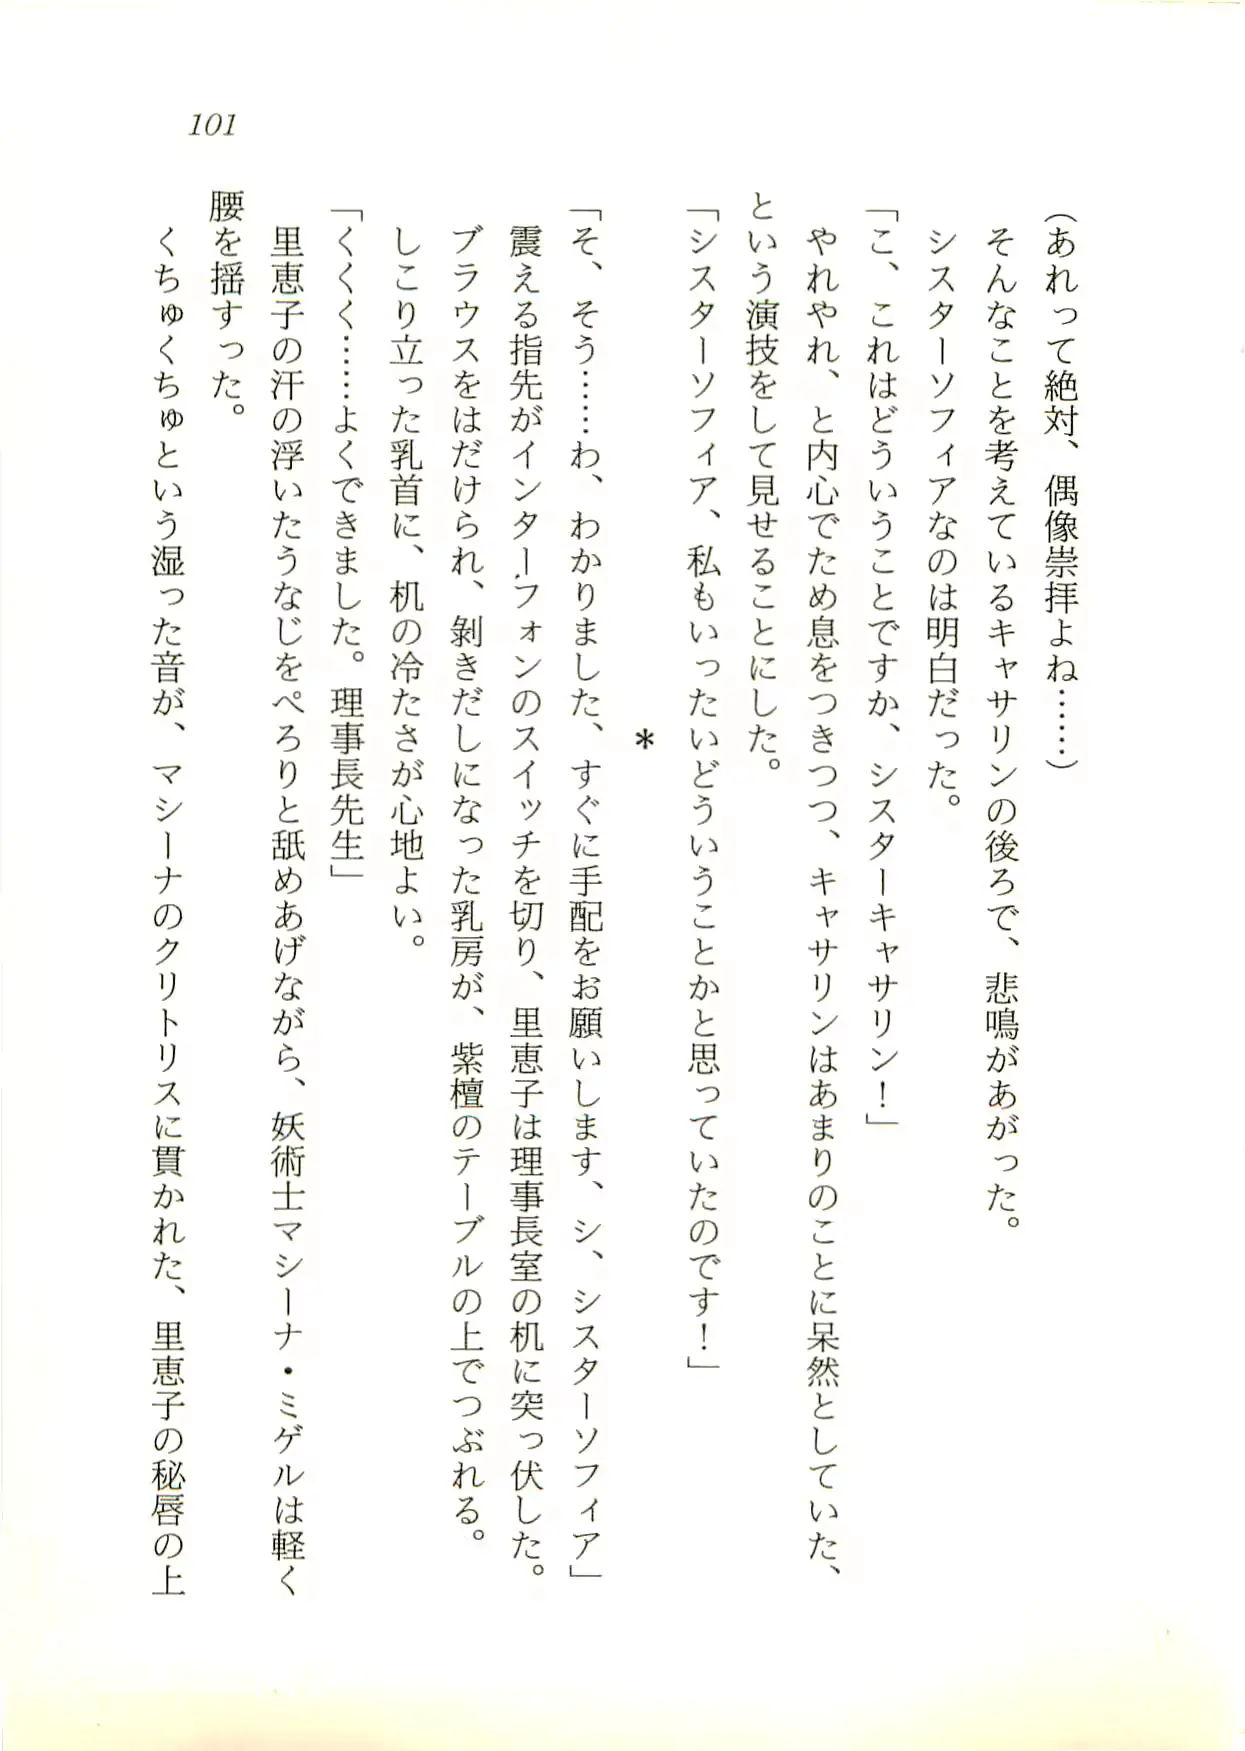 101
(あれって絶対、偶像崇拝よね……)
そんなことを考えているキャサリンの後ろで、悲鳴があがった。
シスターソフィアなのは明白だった。
「こ、これはどういうことですか、シスターキャサリン！」
やれやれ、と内心でため息をつきつつ、キャサリンはあまりのことに呆然としていた、
という演技をして見せることにした。
「シスターソフィア、私もいったいどういうことかと思っていたのです！」
＊
「そ、そう……わ、わかりました、すぐに手配をお願いします、シ、シスターソフィア」
震える指先がインターフォンのスイッチを切り、里恵子は理事長室の机に突っ伏した。
ブラウスをはだけられ、剝きだしになった乳房が、紫檀のテーブルの上でつぶれる。
しこり立った乳首に、机の冷たさが心地よい。
「くくく……よくできました。理事長先生」
里恵子の汗の浮いたうなじをぺろりと舐めあげながら、妖術士マシーナ・ミゲルは軽く
腰を揺すった。
くちゅくちゅという湿った音が、マシーナのクリトリスに貫かれた、里恵子の秘唇の上